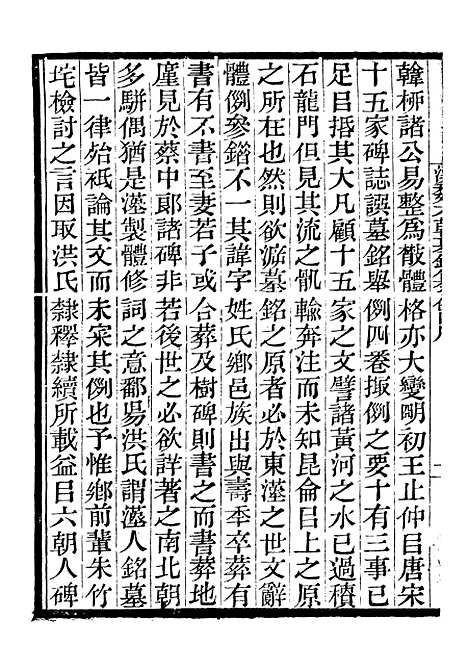 韓桺諸公易整爲散體格亦大變朙初王止仲㠯唐宋
十五家碑誌譔墓銘舉例四卷掫例之要十有三事已
足㠯挋其大凡顧十五家之文譬諸黃河之水已過積
石龍門但見其流之骩輸奔注而未知昆侖㠯上之原
之所在也然則欲游墓銘之原者必於東漢之世文辭
體例參錯不一其諱字姓氏鄉邑族出與壽秊卒葬有
書有不書至妻若子或合葬及樹碑則書之而書葬地
廑見於蔡中郞諸碑非若後世之必欲詳著之南北朝
多駢偶猶是漢製體修詞之意鄱昜洪氏謂漢人銘墓
皆一律殆衹論其文而未寀其例也予惟鄉前輩朱竹
垞檢討之言因取洪氏隸釋隸續所載益㠯六朝人碑